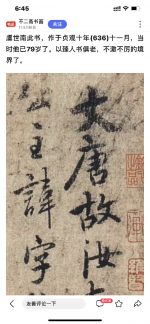 6:45
不二斋书画
关注
虞世南此书，作于贞观十年(636)十一月，当
时他已79岁了。以臻人书俱老，不激不厉的境
界了。
大唐故汝
公主諱字
友善评论一下